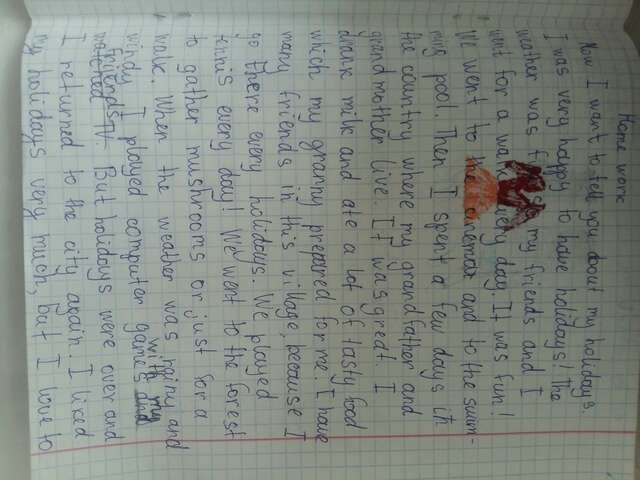 Home work
Now I want to tell you about my holidays.
I was very happy to have holidays! The
weather was so my friends and I
went for a walk every day. It was fun!
We went to the cinema and to the swim-
ming pool. Then I spent a few days in
the country where my grandfather and
grandmother live. It was great I
drank milk and ate a lot of tasty food
which my granny prepared for me. I have
many friends in this village, because I
go there every holidays. We played
tennis every day! We went to the forest
to gather mushrooms or just for a
walk. When the weather was rainy and
windy I played computer games with my
friends. But holidays were over and
I returned to the city again. I liked
my holidays very much, but I love to